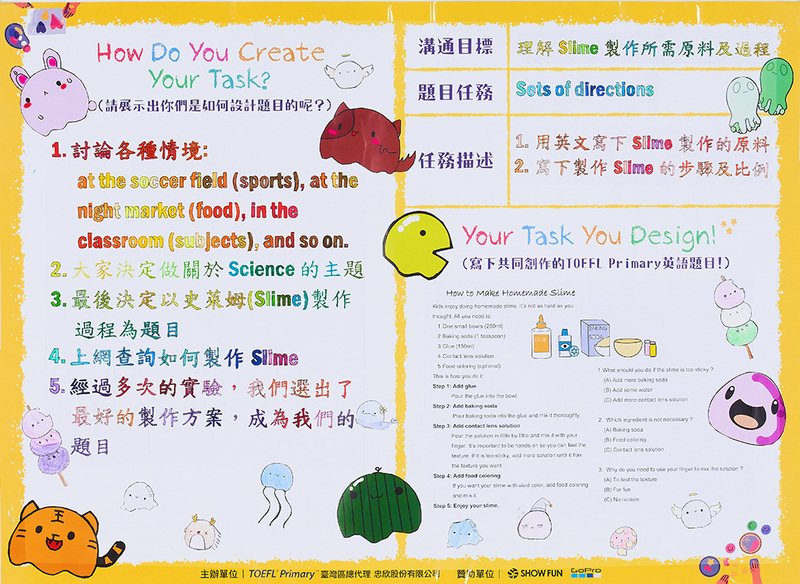 How Do You Create
Your Task?
(請展示出你們是如何設計題目的呢?)
1. 討論各種情境:
at the soccer field (sports), at the
night market (food), in the
classroom (subjects), and so on.
2. 大家決定做關於 Science 的主題
3. 最後決定以史萊姆(Slime)製作
過程為題目
4. 上網查詢如何製作 Slime
5. 經過多次的實驗，我們選出了
最好的製作方案，成為我們的
題目
溝通目標
理解 Slime 製作所需原料及過程
題目任務
Sets of directions
任務描述
1. 用英文寫下 Slime 製作的原料
2. 寫下製作 Slime 的步驟及比例
Your Task You Design!
(寫下共同創作的TOEFL Primary英語題目!)
How to Make Homemade Slime
Kids enjoy doing homemade slime. It's not as hard as you
thought. All you need is:
1. One small bowls (250ml)
2. Baking soda (1 teaspoon)
3. Glue (150ml)
4. Contact lens solution
5. Food coloring (optional)
This is how you do it:
Step 1: Add glue
Pour the glue into the bowl.
Step 2: Add baking soda
Pour baking soda into the glue and mix it thoroughly.
Step 3: Add contact lens solution
Pour the solution in little by little and mix it with your
finger. It's important to be hands-on so you can feel the
texture. If it is too sticky, add more solution until it has
the texture you want.
Step 4: Add food coloring
If you want your slime with vivid color, add food coloring
and mix it.
Step 5: Enjoy your slime.
BAKING
SODA
1 What should you do if the slime is too sticky ?
(A) Add more baking soda
(B) Add some water
(C) Add more contact lens solution
2. Which ingredient is not necessary ?
(A) Baking soda
(B) Food coloring
(C) Contact lens solution
3. Why do you need to use your finger to mix the solution ?
(A) To test the texture
(B) For fun
(C) No reason
王
主辦單位 | TOEFL Primary 臺灣區總代理 忠欣股份有限公司 贊助單位 | SHOW FUN GoPro